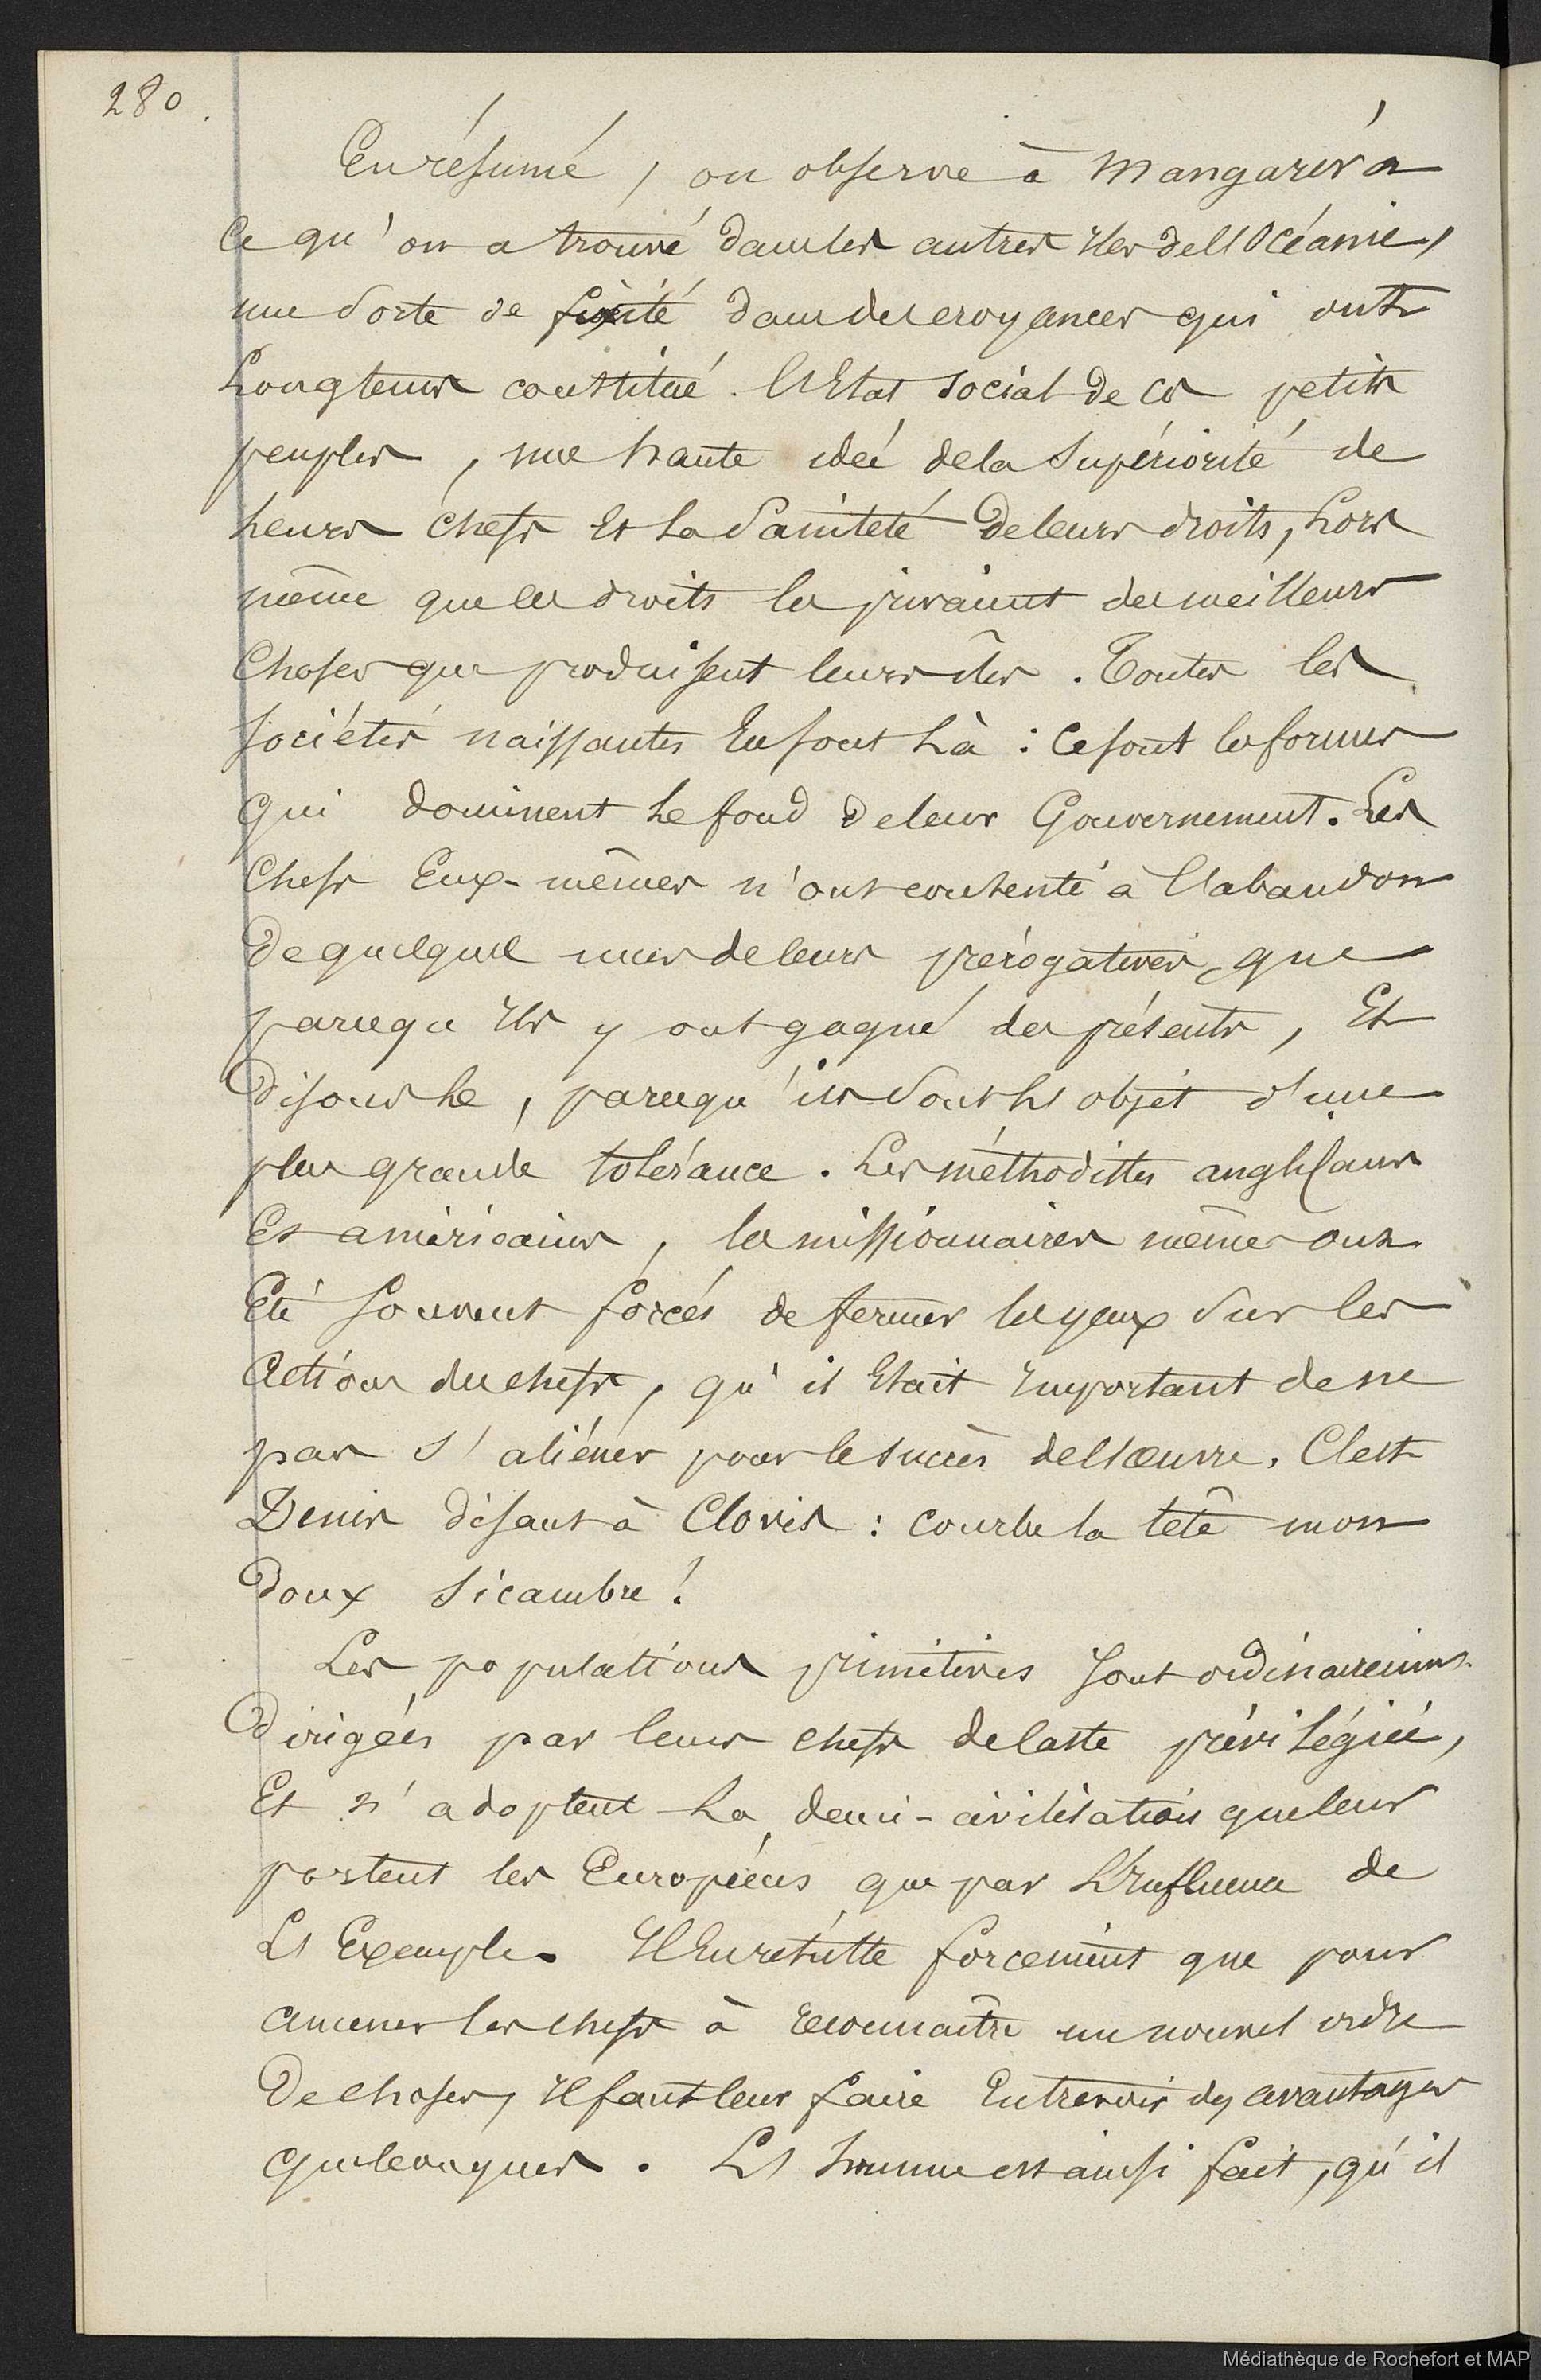 280.
En résumé, on observe à Mangaréva
ce qu'on a trouvé dans les autres îles de l'Océanie,
une sorte de fixité dans des croyances qui ont
longtems constitué. l'Etat social de ces petits
peuples, une haute idée de la supériorité de
leurs chefs et la sainteté de leurs droits, lors
même que ces droits les privaient des meilleurs
choses que produisent leurs îles. Toutes les
sociétés naissantes en sont là : ce sont les formes
qui dominent le fond de leur Gouvernement. Les
chefs eux-mêmes n'ont consenti à l'abandon
de quelques unes de leurs prérogatives, que
parceque ils y ont gagné des présents, et
disons le, parcequ'ils sont l'objet d'une
plus grande tolérance. Les méthodistes anglicans
et américains, les missionnaires même ont
été souvent forcés de fermer les yeux sur les
actions des chefs, qu'il était important de ne
pas s'aliéner pour le succès de l'œuvre. C'est
Denis disant à Clovis : courbe la tête mon
doux sicambre !
Les populations primitives sont ordinairement
dirigées par leurs chefs de caste privilégiée,
et n'adoptent la demi-civilisation que leur
portent les Européens que par l'influence de
l'exemple. Il en résulte forcément que pour
amener les chefs à reconnaître un nouvel ordre
de choses, il faut leur faire entrevoir des avantages
quelconques. L'homme est ainsi fait, qu'il
Médiathèque de Rochefort et MAP